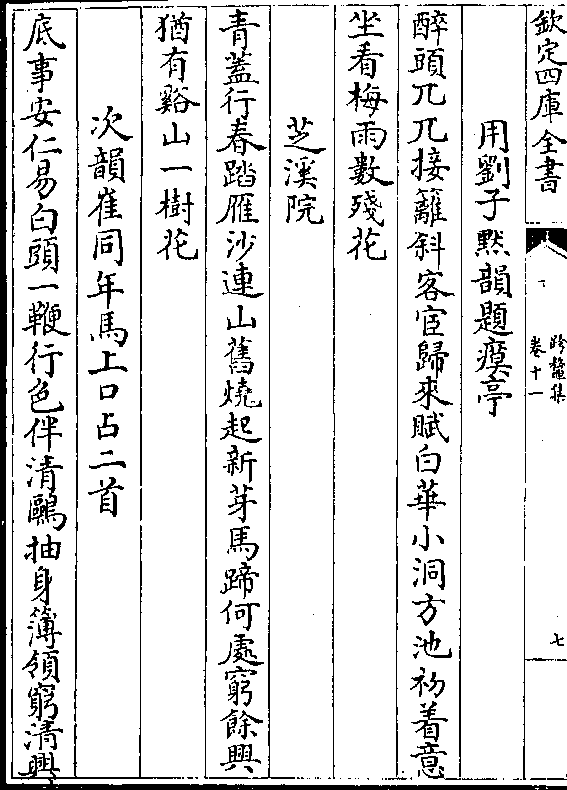 欽定四庫全書
跨鼇集
卷十一
七
用劉子黙韻題㾮亭
醉頭兀兀接籬斜客宦歸來賦白華小洞方池初着意
坐看梅雨數殘花
芝溪院
青蓋行春踏雁沙連山舊燒起新芽馬蹄何處窮餘興
猶有谿山一樹花
次韻崔同年馬上口占二首
底事安仁易白頭一鞭行色伴清鷗抽身簿領窮清興